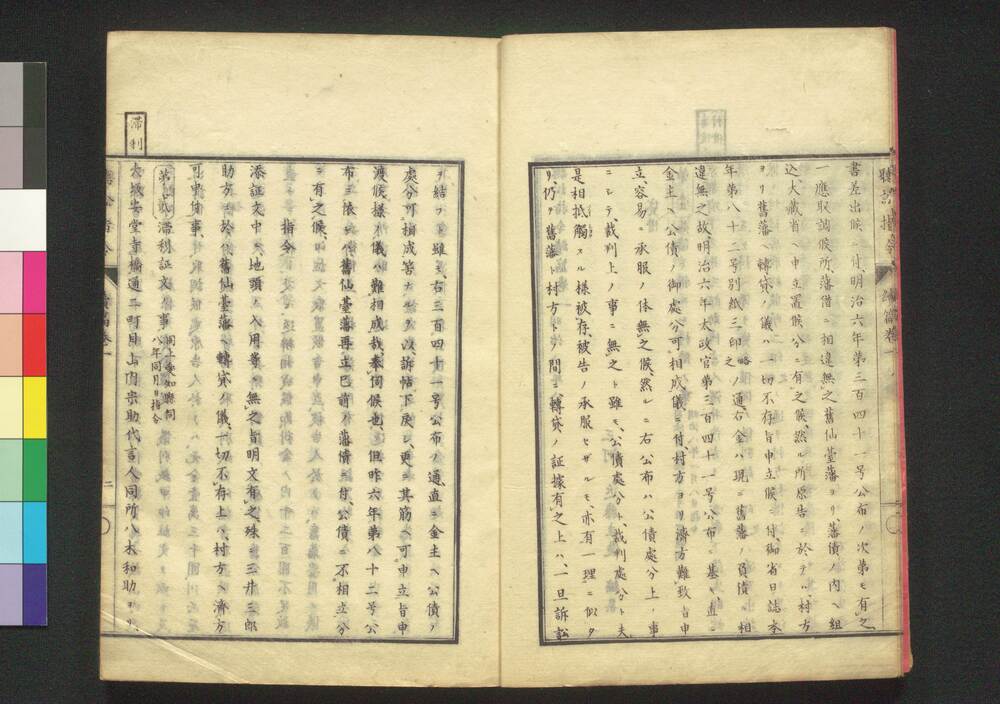 書差出候ヘ共、明治六年第三百四十一号公布ノ次第モ有之、
一應取調候所、藩借ニ相違無之、舊仙臺藩ヨリ、藩債ノ内ヘ組
込、大藏省ヘ申立置候分ニ有之候、然ル所原告ニ於テハ、村方
ヨリ舊藩ヘ轉貸ノ儀ハ、一切不存旨申立候ニ付、御省日誌本
年第八十二号別紙三印之略ノ通、右金ハ現ニ舊藩ノ負債ニ相
違無之故、明治六年太政官第三百四十一号公布ニ基キ、直ニ
金主ヘ公債ノ御處分可相成儀ニ付、村方ヨリ濟方難致旨申
立、容易ニ承服ノ体無之候、然ルニ右公布ハ公債處分上ノ事
ニシテ、裁判上ノ事ニ無之ト雖モ、公債處分ト、裁判處分ト、夫
是相抵觸スル様被存、被告ノ承服セザルモ、亦有一理ニ似タ
リ、仍テ舊藩ト村方トノ間ニ、轉貸ノ証據有之上ハ、一旦訴訟
ヲ結ブト雖モ、右三百四十一号公布ノ通、直ニ金主ヘ公債ノ
處分可相成筈ナルヲ以、訴帖下戻シ、更ニ其筋ヘ可申立旨申
渡候様ノ儀ハ、難相成哉、奉伺候也、但昨六年第八十二号公
布ニ依テ、舊仙臺藩再立已前ノ藩債ニ付、公債ニ不相立分
ニ有之候、
指令
添証文中ニハ、地頭ノ入用等ノ無之旨明文有之、殊ニ三井三郎
助方ニ於テ、舊仙臺藩ヘ轉貸ノ儀、一切不存上ハ、村方ヘ濟方
可申付事、
第二 滯利証文ノ事 同上愛知縣伺 八年同月日指令
大坂安堂寺橋通二町目山内宗助代言人同所八木和助ヨリ、
滯利